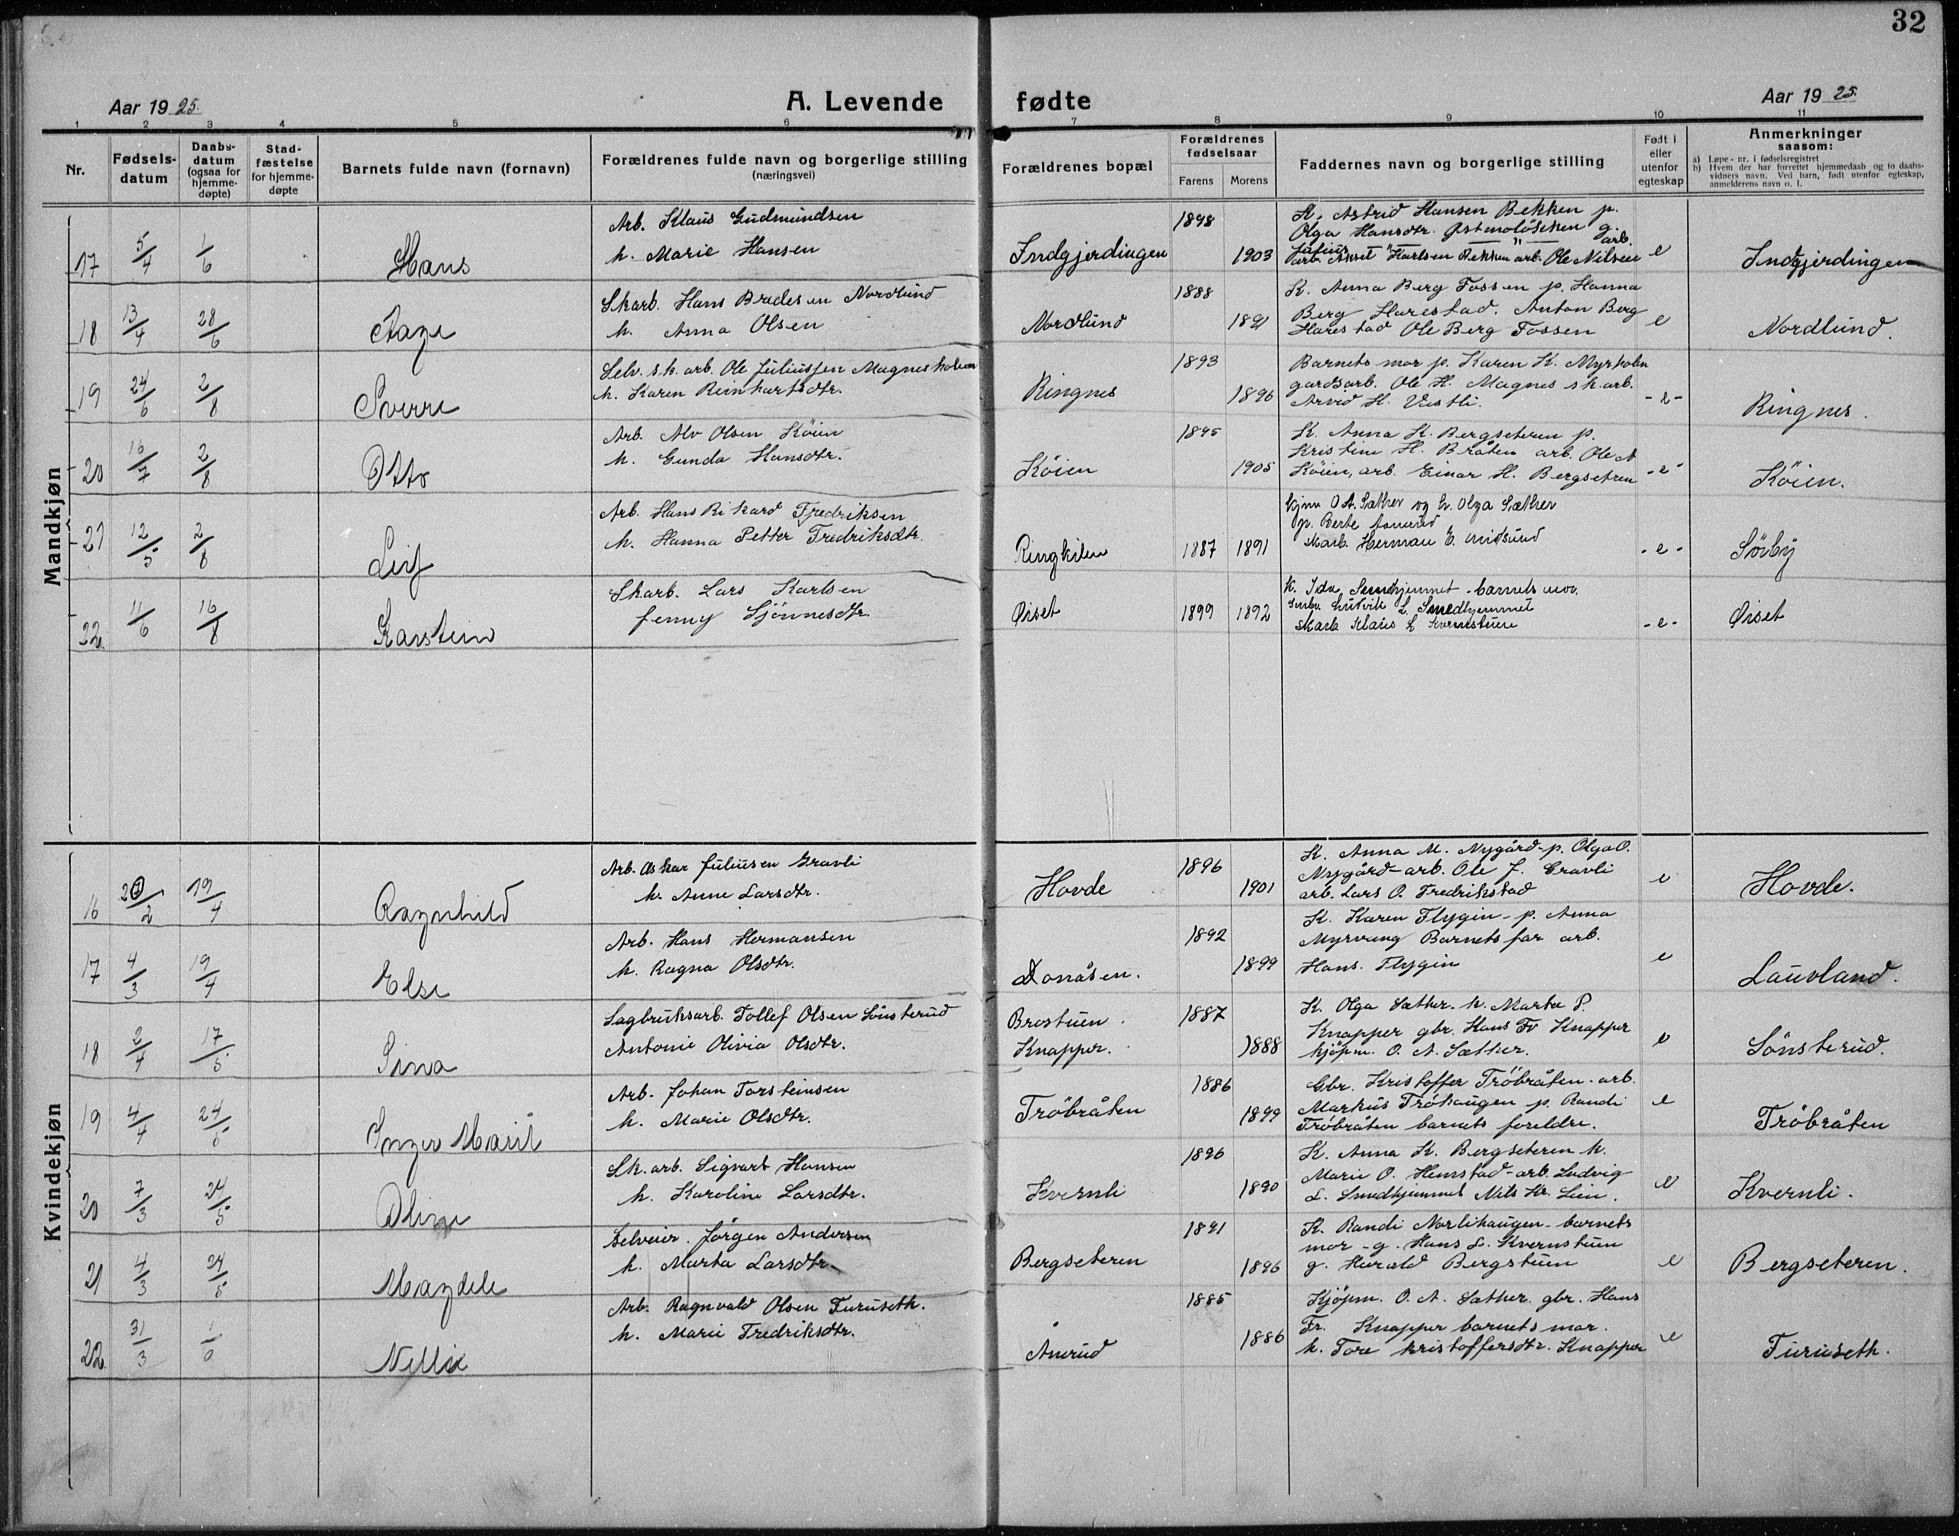 32
Aar 1925.
A. Levende
fødte
Aar 1925.
1 2 3 4 5 6 7 8 9 10 11
Nr.
Fødsels-
datum
Daabs-
datum
(ogsaa for
hjemme-
døpte)
Stad-
fæstelse
for hjemme-
døpte
Barnets fulde navn (fornavn)
Forældrenes fulde navn og borgerlige stilling
(næringsvei)
Forældrenes bopæl
Forældrenes
fødselsaar
Farens Morens
Faddernes navn og borgerlige stilling
Født i
eller
utenfor
egteskap
Anmerkninger
saasom:
a) Løpe-nr. i fødselsregistret
b) Hvem der har forrettet hjemmedaab og to daabs-
vidners navn. Ved barn, født utenfor egteskap,
anmelderens navn o. l.
Mandkjøn
17 5/4 1/6 Hans
Arb. Klaus Gudmundsen
h. Marie Hansen
Indgjerdingen 1898 1903
K. Astrid Hansen Bekken p.
Olga Hansdtr. g.
arb. Karlsen Bekken arb. Ole Nilsen
e Indgjerdingen
18 13/4 28/6 Aage
Skarb. Hans Bredesen Nordlund
h. Anna Olsen
Nordlund 1888 1891
K. Anna Berg Fossen p. Hanna
Berg Harestad. Anton Berg
Harestad Ole Berg Fossen
e Nordlund.
19 24/6 2/8 Sverre
Selv. sk. arb. Ole Juliussen Magnesholen
h. Karen Reinhartsdtr.
Ringnes 1893 1896
Barnets mor p. Karen K. Myrholen
gardsarb. Ole H. Magnes sk. arb.
Arvid H. Vestli.
-e- Ringnes.
20 16/7 2/8 Otto
Arb. Alv Olsen Köien
h. Gunda Hansdtr.
Köien 1895 1905
K. Anna K. Bergseteren p.
Kristine H. Bråten arb. Ole A
Köien, arb. Einar H. Bergsetren
-e- Köien.
21 12/5 2/8 Leif
Arb. Hans Rikard Fredriksen
h. Hanna Petter Fredriksdtr.
Ringkilen 1887 1891
Kjøm O A. Sæther og h. Olga Sæther
p. Berte
Marb. Herman E.
-e- Sörby
22 11/6 16/8 Karstein
Skarb. Lars Karlsen
Jenny Sjönnesdtr.
Øiset 1899 1892
K. Ida Smedhjemmet barnets mor.
Ludvik L. Smedhjemmet
Marb Klaus L Kvernstuen
-e- Øiset
Kvindekjøn
16 27/2 19/4 Ragnhild
Arb. Oskar Juliusen Gravli
h. Anne Larsdtr.
Hovde 1896 1901
K. Anna M. Nygård - p. Olga O.
Nygård - arb. Ole J. Gravli
arb. Lars O. Fredrikstad
e Hovde.
17 4/3 19/4 Else
Arb. Hans Hermansen
h. Ragna Olsdtr.
Donåsen. 1892 1899
K. Karen Flygin - p. Anna
Myrvang Barnets far arb.
Hans. Flygin
e Lauvland.
18 2/4 17/5 Sina
Sagbruksarb. Tollef Olsen Sönsterud
Antonie Olivia Olsdtr.
Brostuen
Knapper. 1887 1888
K. Olga Sæther - h. Marta P.
Knapper gbr. Hans Fr Knapper
kjöpm. O. A. Sæther.
e Sönsterud.
19 4/4 24/5 Inger Marit
Arb. Johan Torsteinsen
h. Marie Olsdtr.
Tröbråten 1886 1899
Gbr. Kristoffer Tröbråten - arb.
Markus Tröhaugen p. Randi
Tröbråten barnets foreldre.
e Tröbråten
20 7/3 24/5 Oline
Sk. arb. Sigvart Hansen
h. Karoline Larsdtr.
Kvernli 1896 1890
K. Anna K. Bergseteren h.
Marie O. Hemstad - arb. Ludvig
L. Smedhjemmet Nils Kr. Lien.
e Kvernli.
21 4/3 24/5 Magdele
Selveier. Jörgen Andersen
h. Marta Larsdtr.
Bergseteren 1891 1896
K. Randi Norlihaugen - barnets
mor - g. Hans L. Kvernstuen
g. Harald Bergstuen
e Bergseteren.
22 31/3 1/6 Nellie
Arb. Ragnvald Olsen Furuseth.
h. Marie Fredriksdtr.
Amrud 1885 1886
Kjöpm. O. A. Sæther. gbr. Hans
Fr. Knapper barnets mor.
h. Tore Kristoffersdtr. Knapper
e Furuseth.